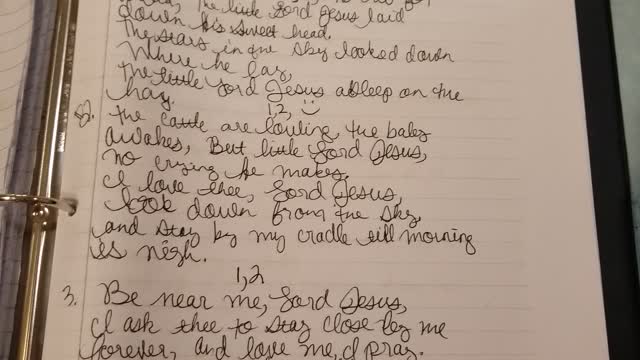 the little Lord Jesus laid
down his sweet head.
The stars in the sky looked down
Where he lay,
the little Lord Jesus asleep on the
hay.
1,2, ☺
2. the cattle are lowing, the baby
awakes, But little Lord Jesus,
no crying he makes.
I love thee, Lord Jesus,
look down from the sky,
and stay by my cradle till morning
is nigh.
1,2
3. Be near me, Lord Jesus,
I ask thee to stay close by me
forever, and love me, I pray.